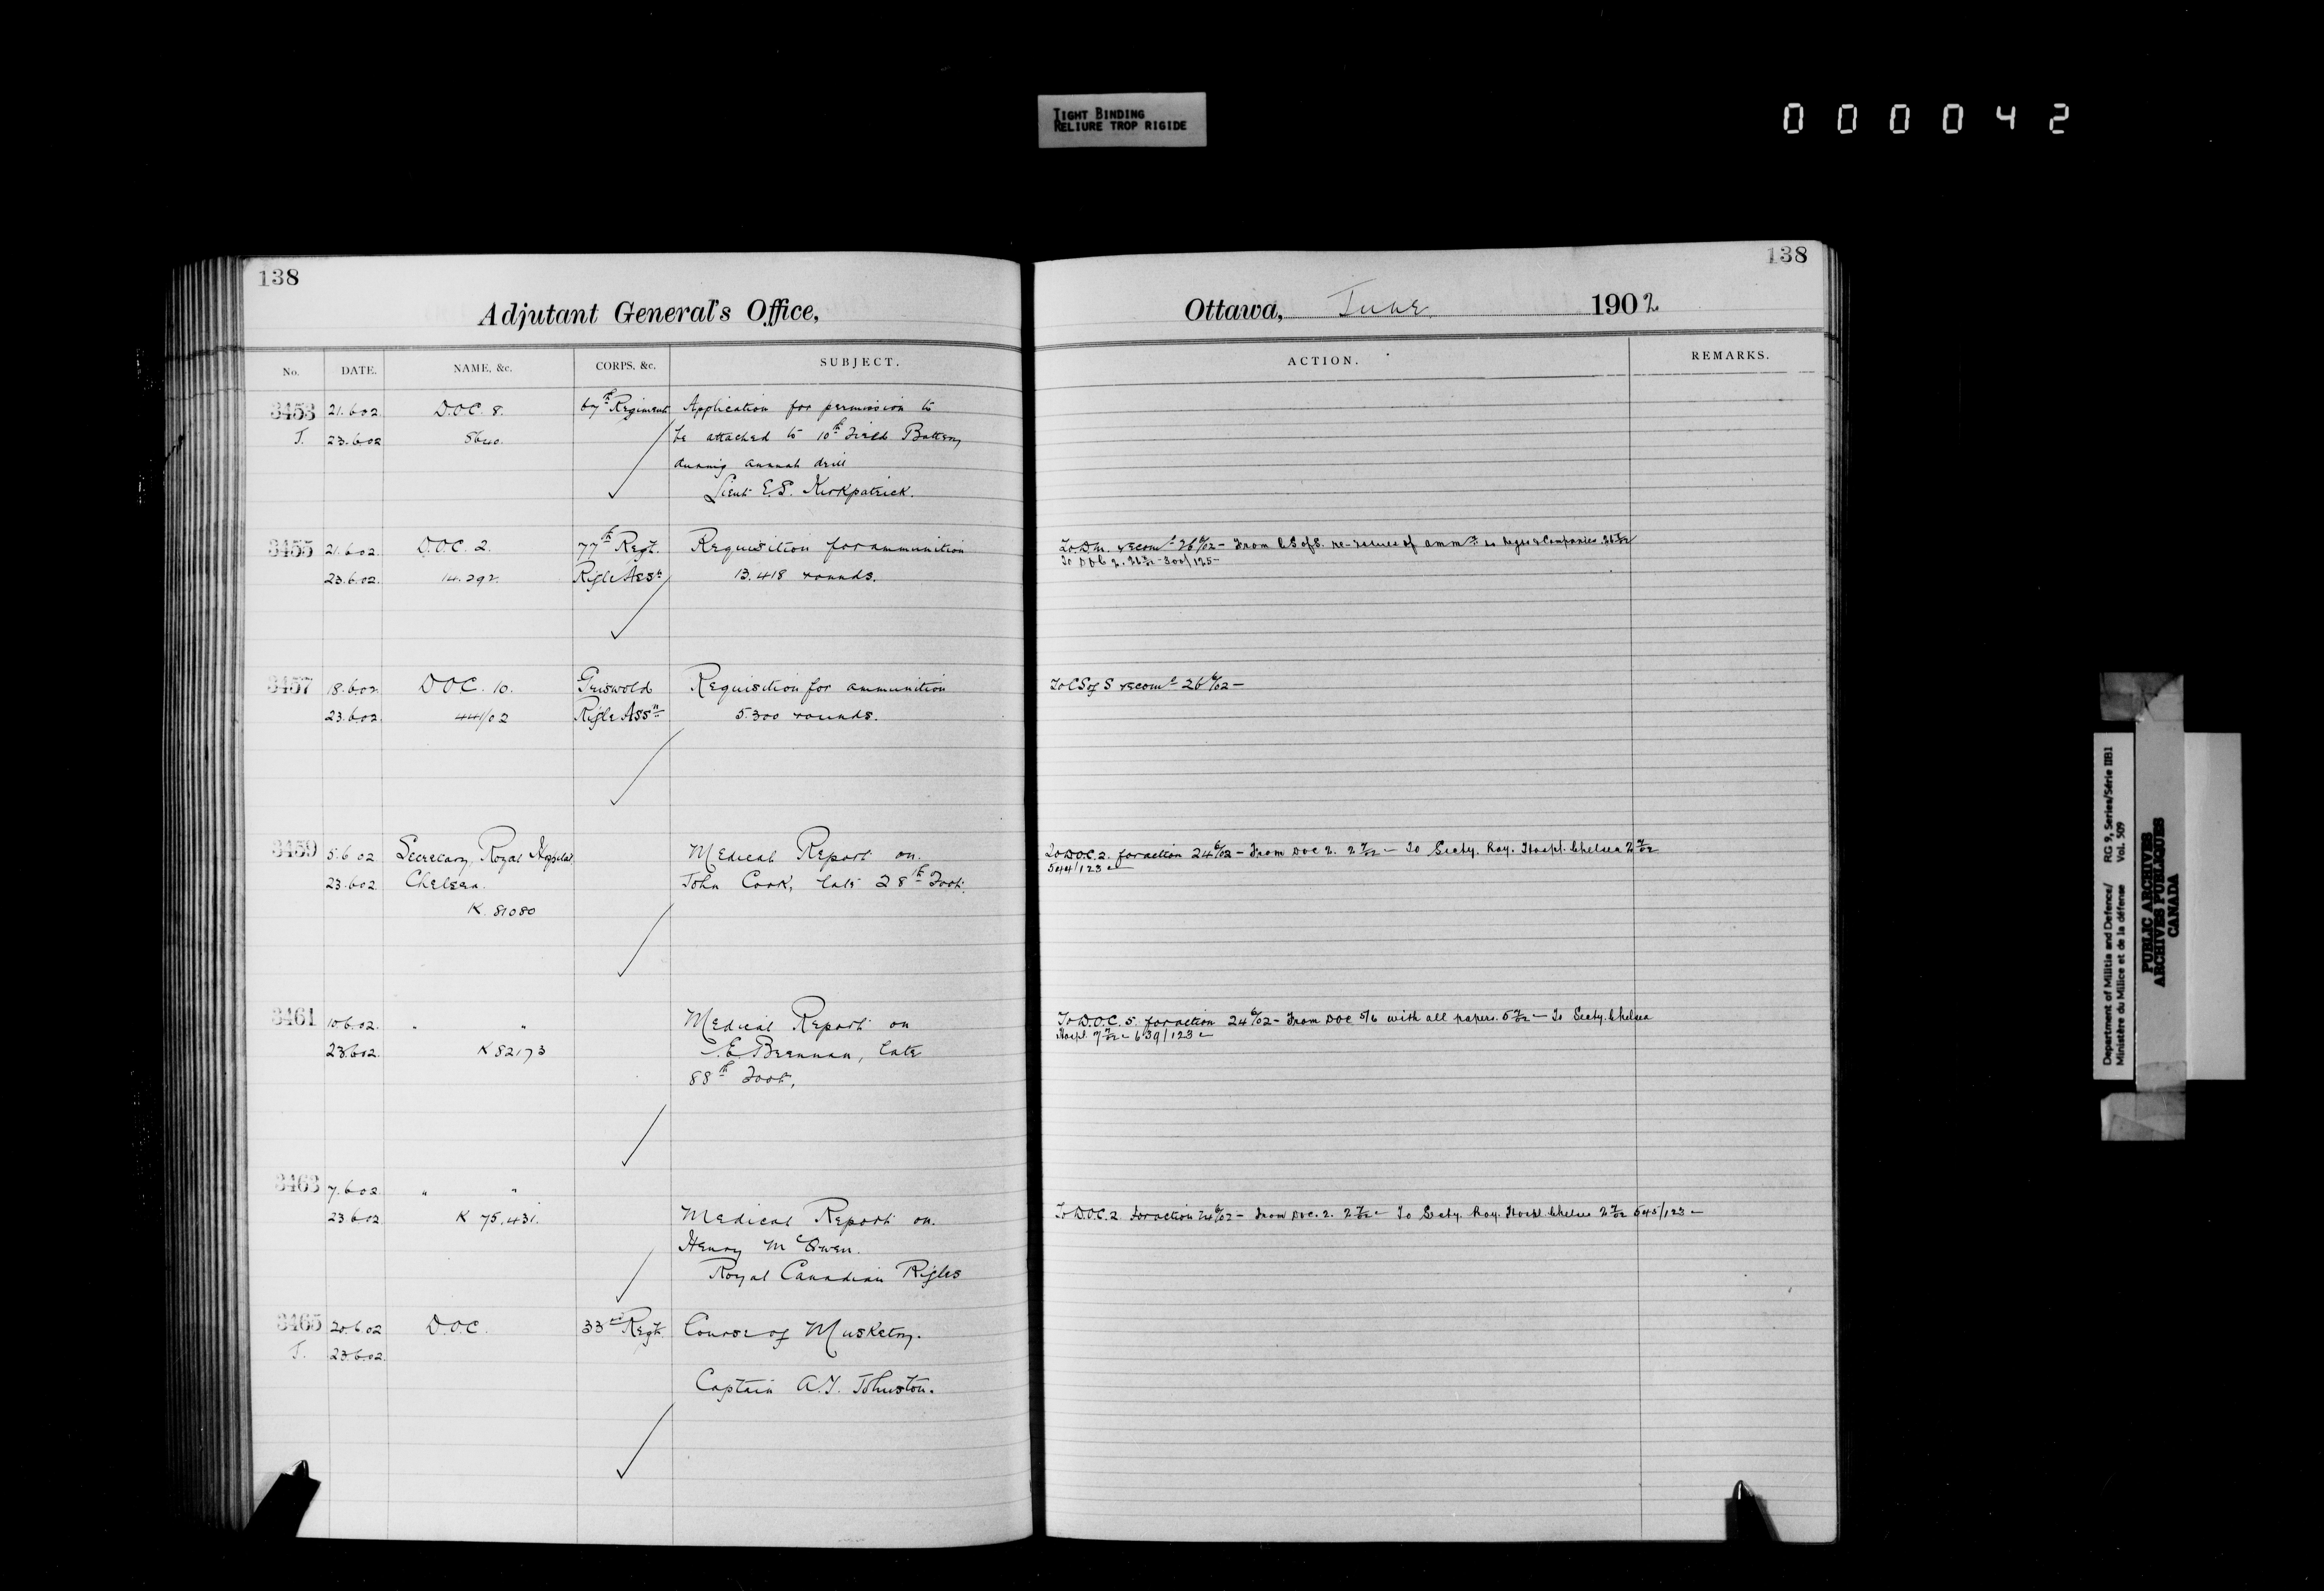 TIGHT BINDING
RELIURE TROP RIGIDE
000042
138
Adjutant General's Office,
No. DATE. NAME, &c. CORPS, &c. SUBJECT.
3453 21.6.02 D.O.C. 8. 67th Regiment Application for permission to
J. 23.6.02 5640. be attached to 10th Field Battery
during annual drill
Lieut E.S. Kirkpatrick.
3455 21.6.02 D.O.C. 2. 77th Regt. Requisition for ammunition
23.6.02. 14.292. Rifle Assn 13.418 rounds.
3457 18.6.02 D.O.C. 10. Griswold Requisition for ammunition
23.6.02 441/02 Rifle Assn 5.300 rounds.
3459 5.6.02 Secretary, Royal Hospital, Medical Report on.
23.6.02 Chelsea. John Cook, late 28th Foot.
K. 81080
3461 10.6.02. " " Medical Report on
23.6.02. K 82173 Brennan, late
88th Foot.
3463 7.6.02 " "
23.6.02 K 75.431. Medical Report on.
Henry McOwen.
Royal Canadian Rifles
3465 20.6.02 D.O.C. 33rd Regt. Course of Musketry.
J. 23.6.02.
Captain A.T. Johnston.
138
Ottawa, June 1902
ACTION. REMARKS.
To D.M. recomd 26/6/02 - From C.S of S. re-issues of ammn to Regts & Companies
To DOC 2. 300/125-
To C S of S recomd 26/6/02 -
To D.O.C. 2. for action 24/6/02 - From DOC 2. 2/7/02 - To Secty. Roy. Hospl. Chelsea 2/7/02
544/123
To D.O.C. 5. for action 24/6/02 - From DOC 5/6 with all papers. 5/7/02 - To Secty. Chelsea
Hospl. 7/7/02 - 639/123
To D.O.C. 2. for action 24/6/02 - From DOC. 2. 2/7/02 - To Secty. Roy. Hospl. Chelsea 2/7/02 545/123 -
Department of Militia and Defence/ RG 9, Series/Série IIB1
Ministère du Milice et de la défense Vol. 509
PUBLIC ARCHIVES
ARCHIVES PUBLIQUES
CANADA